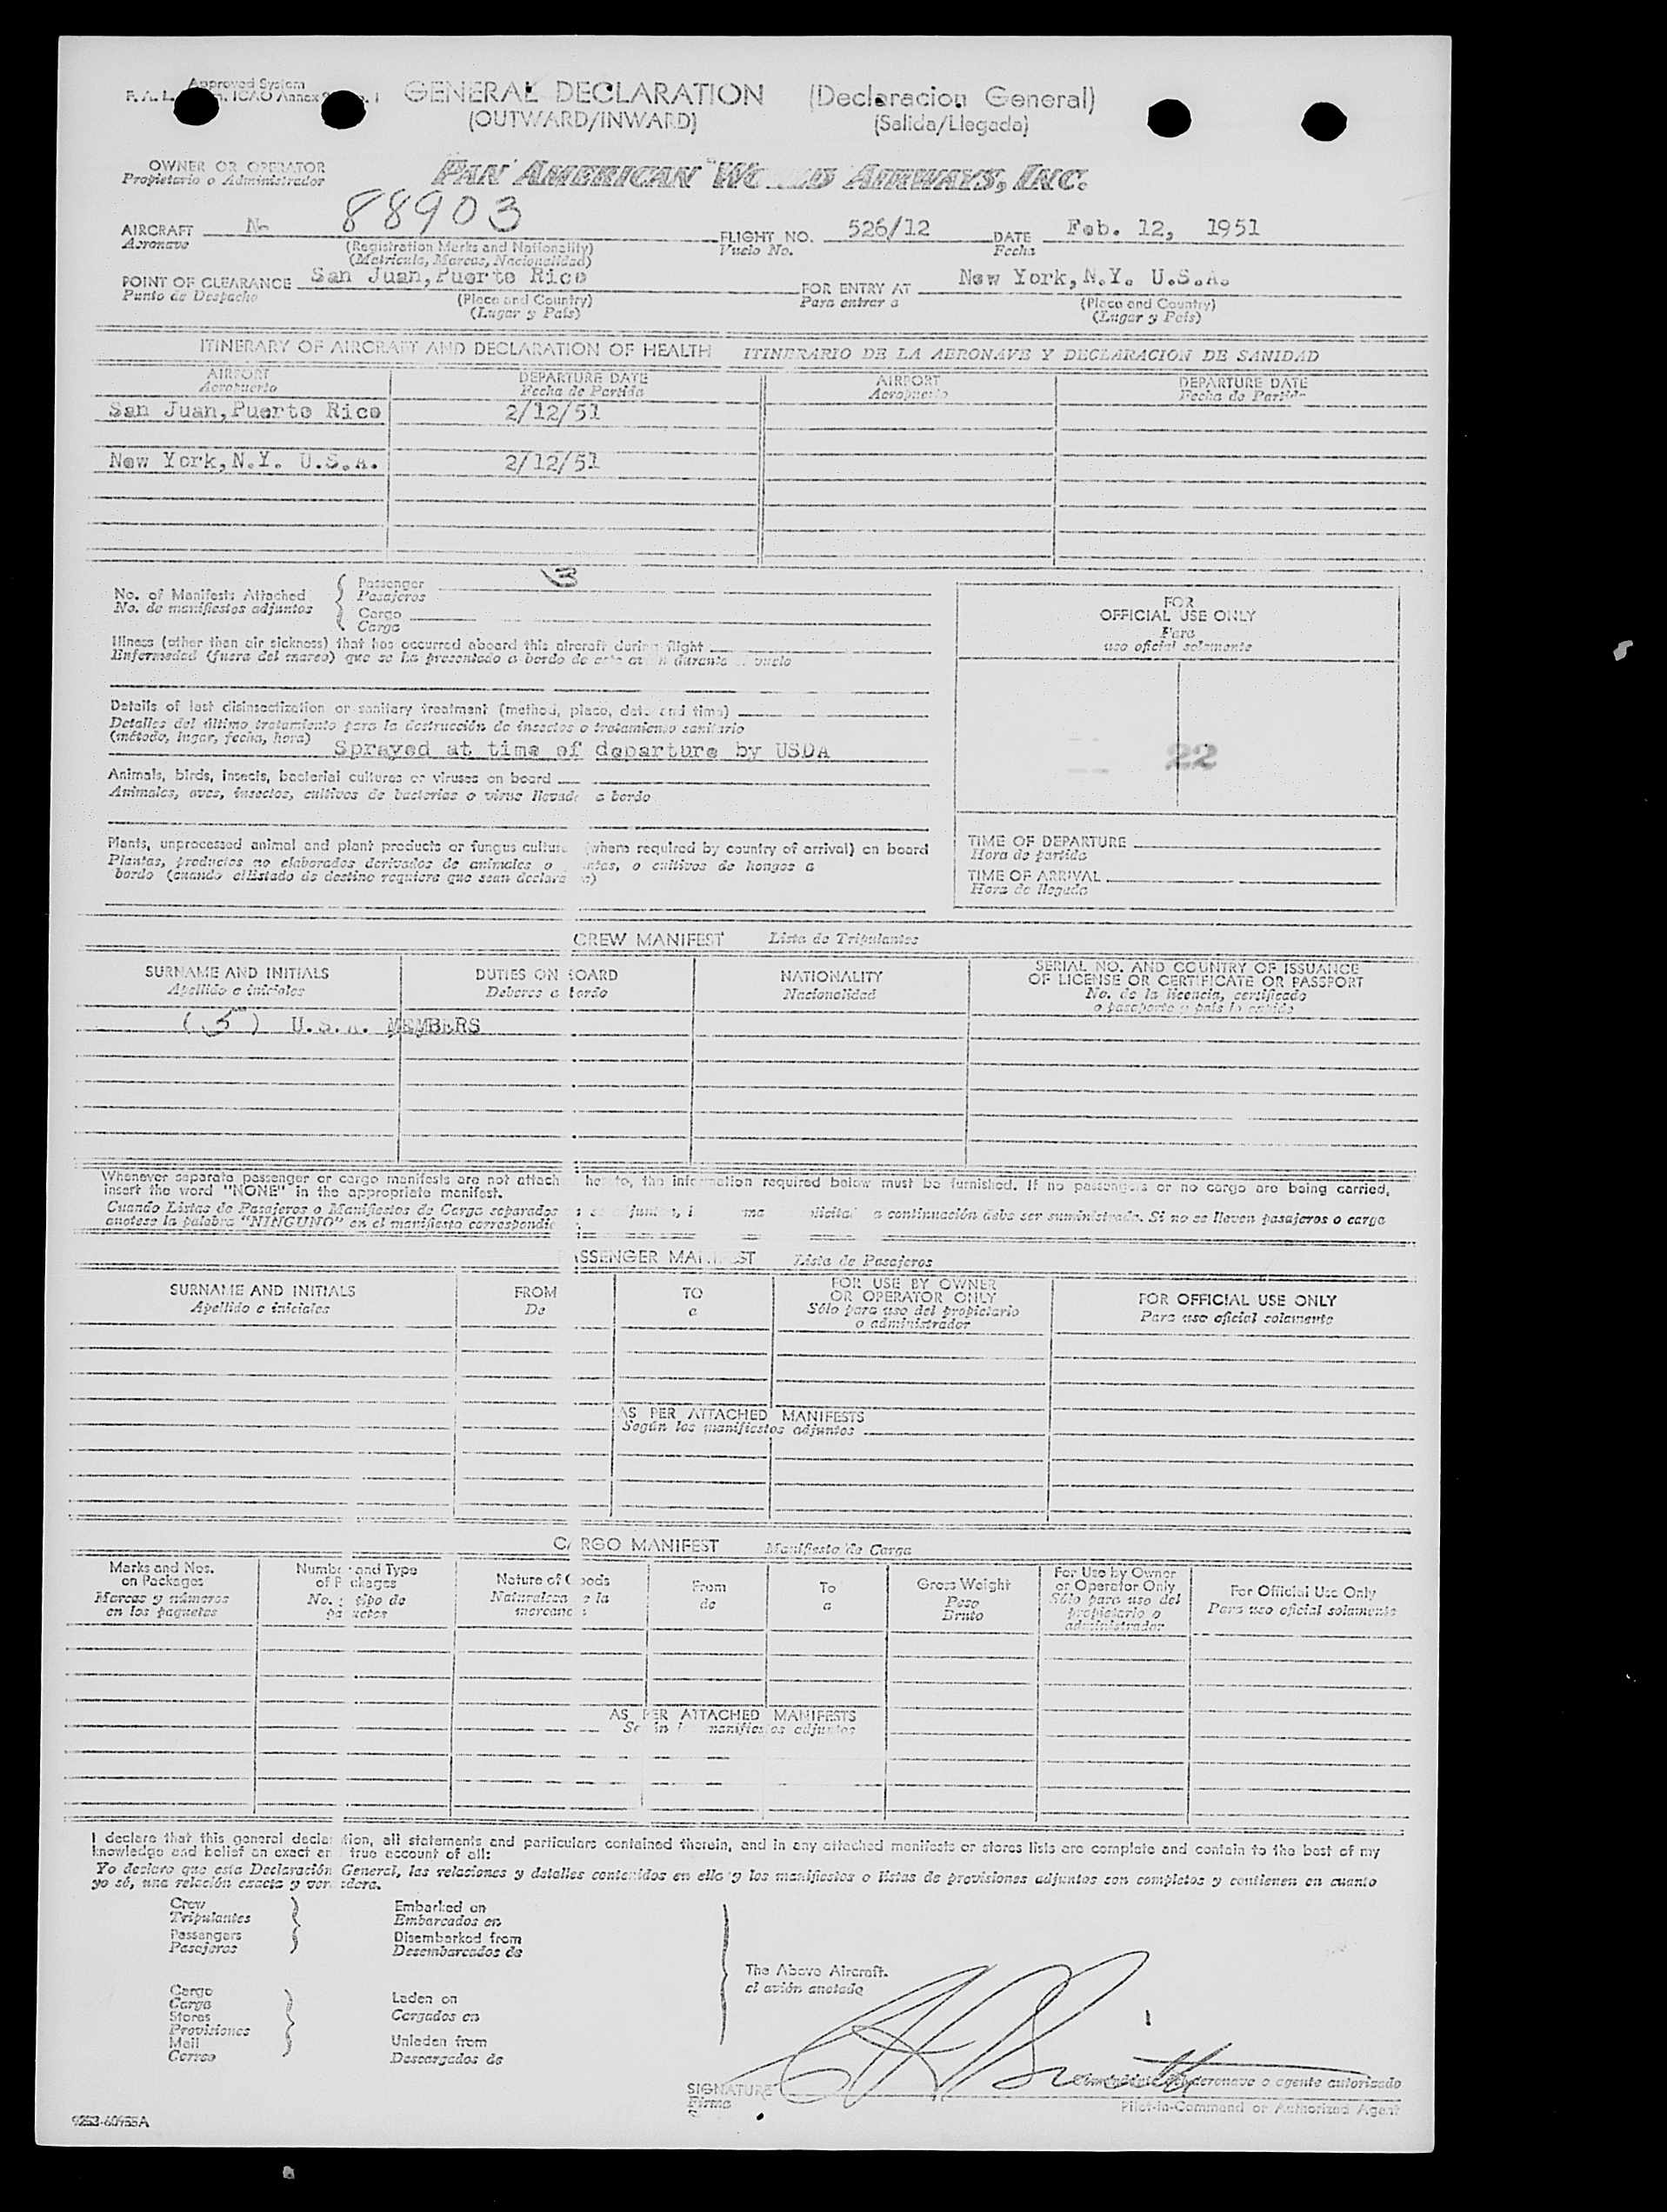 Approved System
F. A. L. ICAO Annex 9 . 1
GENERAL DECLARATION (Declaracion General)
(OUTWARD/INWARD) (Salida/Llegada)
OWNER OR OPERATOR
Propietario o Administrador
PAN AMERICAN WO D AIRWAYS, INC.
AIRCRAFT N- 88903 FLIGHT NO. 526/12 DATE Feb. 12, 1951
Aeronave (Registration Marks and Nationality) Vuelo No. Fecha
(Matricula, Marcas, Nacionalidad)
POINT OF CLEARANCE San Juan, Puerto Rico FOR ENTRY AT New York, N.Y. U.S.A.
Punto de Despacho (Place and Country) Para entrar a (Place and Country)
(Lugar y País) (Lugar y País)
ITINERARY OF AIRCRAFT AND DECLARATION OF HEALTH ITINERARIO DE LA AERONAVE Y DECLARACION DE SANIDAD
AIRPORT DEPARTURE DATE AIRPORT DEPARTURE DATE
Aeropuerto Fecha de Partida Aeropuerto Fecha de Partida
San Juan, Puerto Rico 2/12/51
New York, N.Y. U.S.A. 2/12/51
No. of Manifests Attached
No. de manifiestos adjuntos
Passenger 3
Pasajeros
Cargo
Carga
Illness (other than air sickness) that has occurred aboard this aircraft during flight
Enfermedad (fuera del mareo) que se ha presentado a bordo de durante vuelo
Details of last disinsectization or sanitary treatment (method, place, dat and time)
Detalles del último tratamiento para la destrucción de insectos o tratamiento sanitario
(método, lugar, fecha, hora) Sprayed at time of departure by USDA
Animals, birds, insects, bacterial cultures or viruses on board
Animales, aves, insectos, cultivos de bacterias o virus llevad a bordo
Plants, unprocessed animal and plant products or fungus cultur (where required by country of arrival) on board
Plantas, productos no elaborados derivados de animales o ntas, o cultivos de hongos a
bordo (cuando elEstado de destino requiera que sean declara s)
FOR
OFFICIAL USE ONLY
Para
uso oficial solamente
22
TIME OF DEPARTURE
Hora de partida
TIME OF ARRIVAL
Hora de llegada
CREW MANIFEST Lista de Tripulantes
SURNAME AND INITIALS DUTIES ON BOARD NATIONALITY SERIAL NO. AND COUNTRY OF ISSUANCE
OF LICENSE OR CERTIFICATE OR PASSPORT
Apellido e iniciales Deberes a bordo Nacionalidad No. de la licencia, certificado
o pasaporte y país
(5) U.S.A. MEMBERS
Whenever separate passenger or cargo manifests are not attach hereto, the information required below must be furnished. If no passengers or no cargo are being carried,
insert the word "NONE" in the appropriate manifest.
Cuando Listas de Pasajeros o Manifiestos de Carga separados se juntan, i ma licitad a continuación debe ser suministrada. Si no se llevan pasajeros o carga
anotese la palabra "NINGUNO" en el manifiesto correspondie
ASSENGER MANIFEST Lista de Pasajeros
SURNAME AND INITIALS FROM TO FOR USE BY OWNER
OR OPERATOR ONLY FOR OFFICIAL USE ONLY
Apellido e iniciales De a Sólo para uso del propietario
o administrador Para uso oficial solamente
AS PER ATTACHED MANIFESTS
Según los manifiestos adjuntos
CARGO MANIFEST Manifiesto de Carga
Marks and Nos.
on Packages
Marcas y números
en los paquetes
Number and Type
of Packages
No. y tipo de
paquetes
Nature of Goods
Naturaleza de la
mercanc
From
de
To
a
Gross Weight
Peso
Bruto
For Use by Owner
or Operator Only
Sólo para uso del
propietario o
administrador
For Official Use Only
Para uso oficial solamente
AS PER ATTACHED MANIFESTS
Según manifiestos adjuntos
I declare that this general declaration, all statements and particulars contained therein, and in any attached manifests or stores lists are complete and contain to the best of my
knowledge and belief an exact an true account of all:
Yo declaro que esta Declaración General, las relaciones y detalles contenidos en ella y los manifiestos o listas de provisiones adjuntos son completos y contienen en cuanto
yo sé, una relación exacta y verdadera.
Crew
Tripulantes
Passengers
Pasajeros
Embarked on
Embarcados en
Disembarked from
Desembarcados de
Cargo
Carga
Stores
Provisiones
Mail
Correo
Laden on
Cargados en
Unladen from
Descargados de
The Above Aircraft.
el avión anotado
SIGNATURE
Firma
aeronave o agente autorizado
Pilot-in-Command or Authorized Agent
9253-60955A